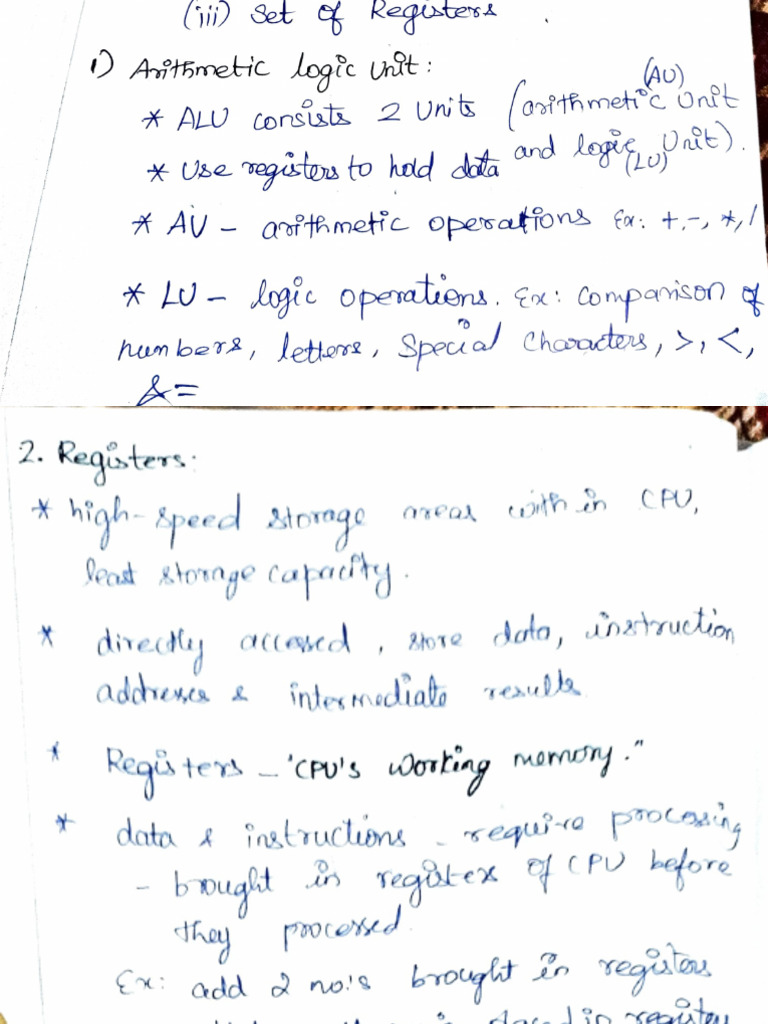 (iii) Set of Registers
1) Arithmetic logic Unit:
* ALU consists 2 Units (arithmetic Unit (AU)
and logic Unit). (LU)
* Use registers to hold data
* AU - arithmetic operations Ex: +, -, *, /
* LU - logic operations. Ex: Comparison of
numbers, letters, Special Characters, >, <,
& =
2. Registers:
* high-speed storage areas with in CPU,
least storage capacity.
* directly accessed, store data, instruction
addresses & intermediate results
* Registers - "CPU's working memory."
* data & instructions - require processing
- brought in register of CPU before
they processed.
Ex: add 2 no.'s brought in registers
placed in register